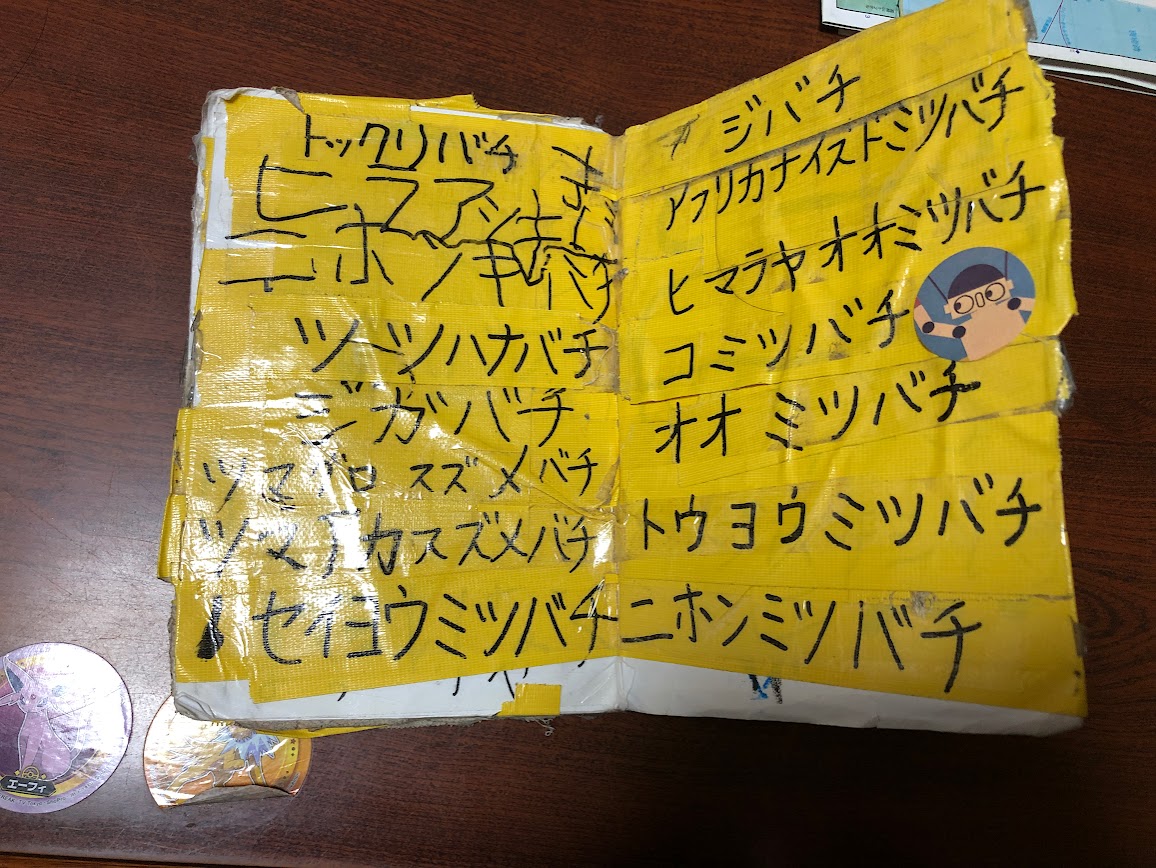 トックリバチ
ヒラアシ
ニホン
ツツハナバチ
ジガバチ
ツマグロスズメバチ
ツマアカスズメバチ
セイヨウミツバチ
ジバチ
アフリカナイズドミツバチ
ヒマラヤオオミツバチ
コミツバチ
オオミツバチ
トウヨウミツバチ
ニホンミツバチ
エーフィ